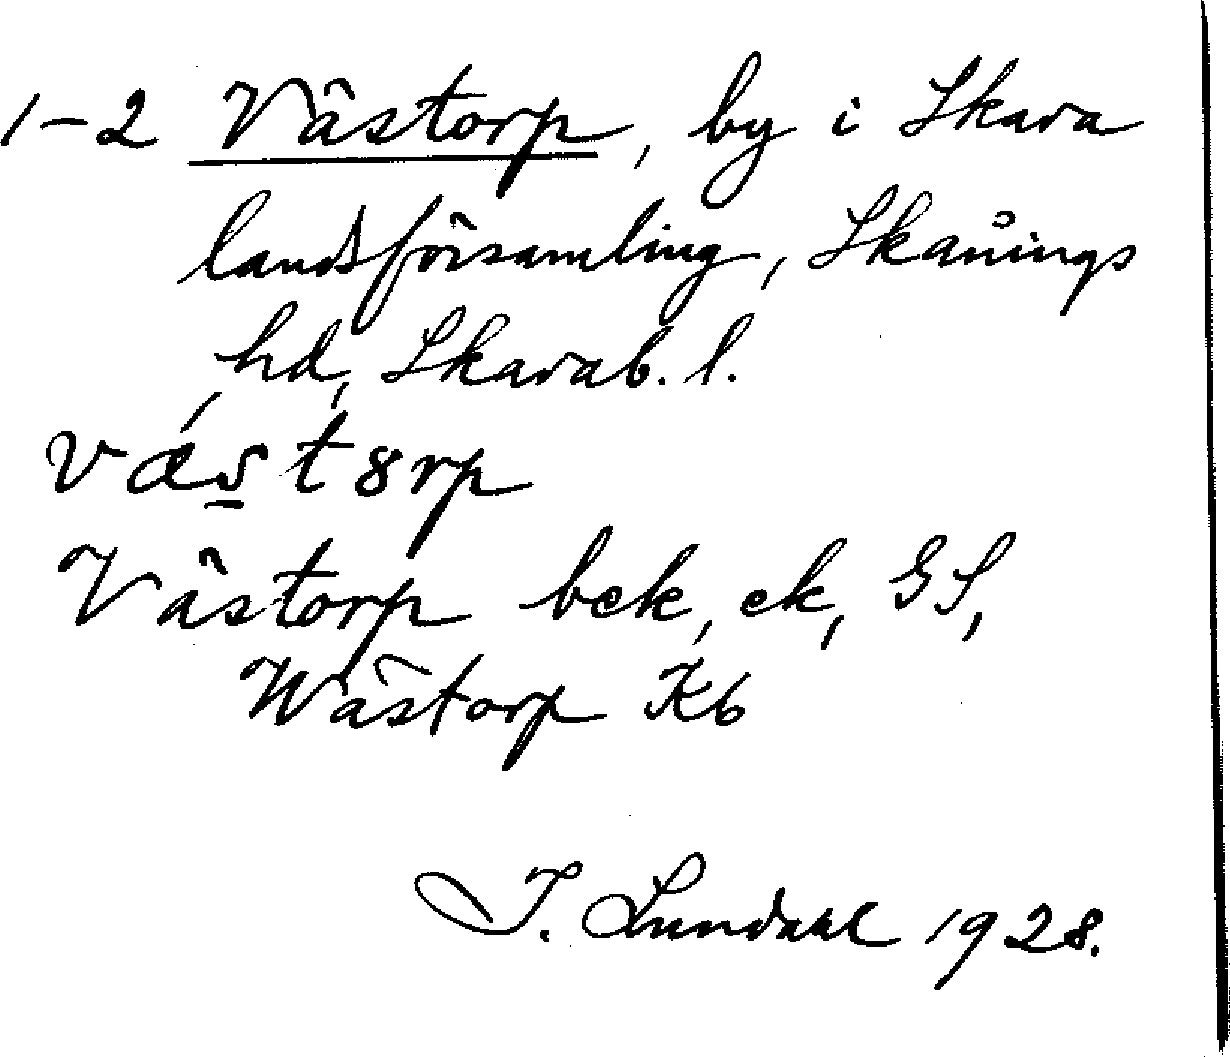 1-2 Västorp, by i Skara
landsförsamling, Skånings
hd, Skarab. l.
vǽst8rp
Västorp bek, ek, GS,
Wästorp Kb
I. Lundahl 1928.